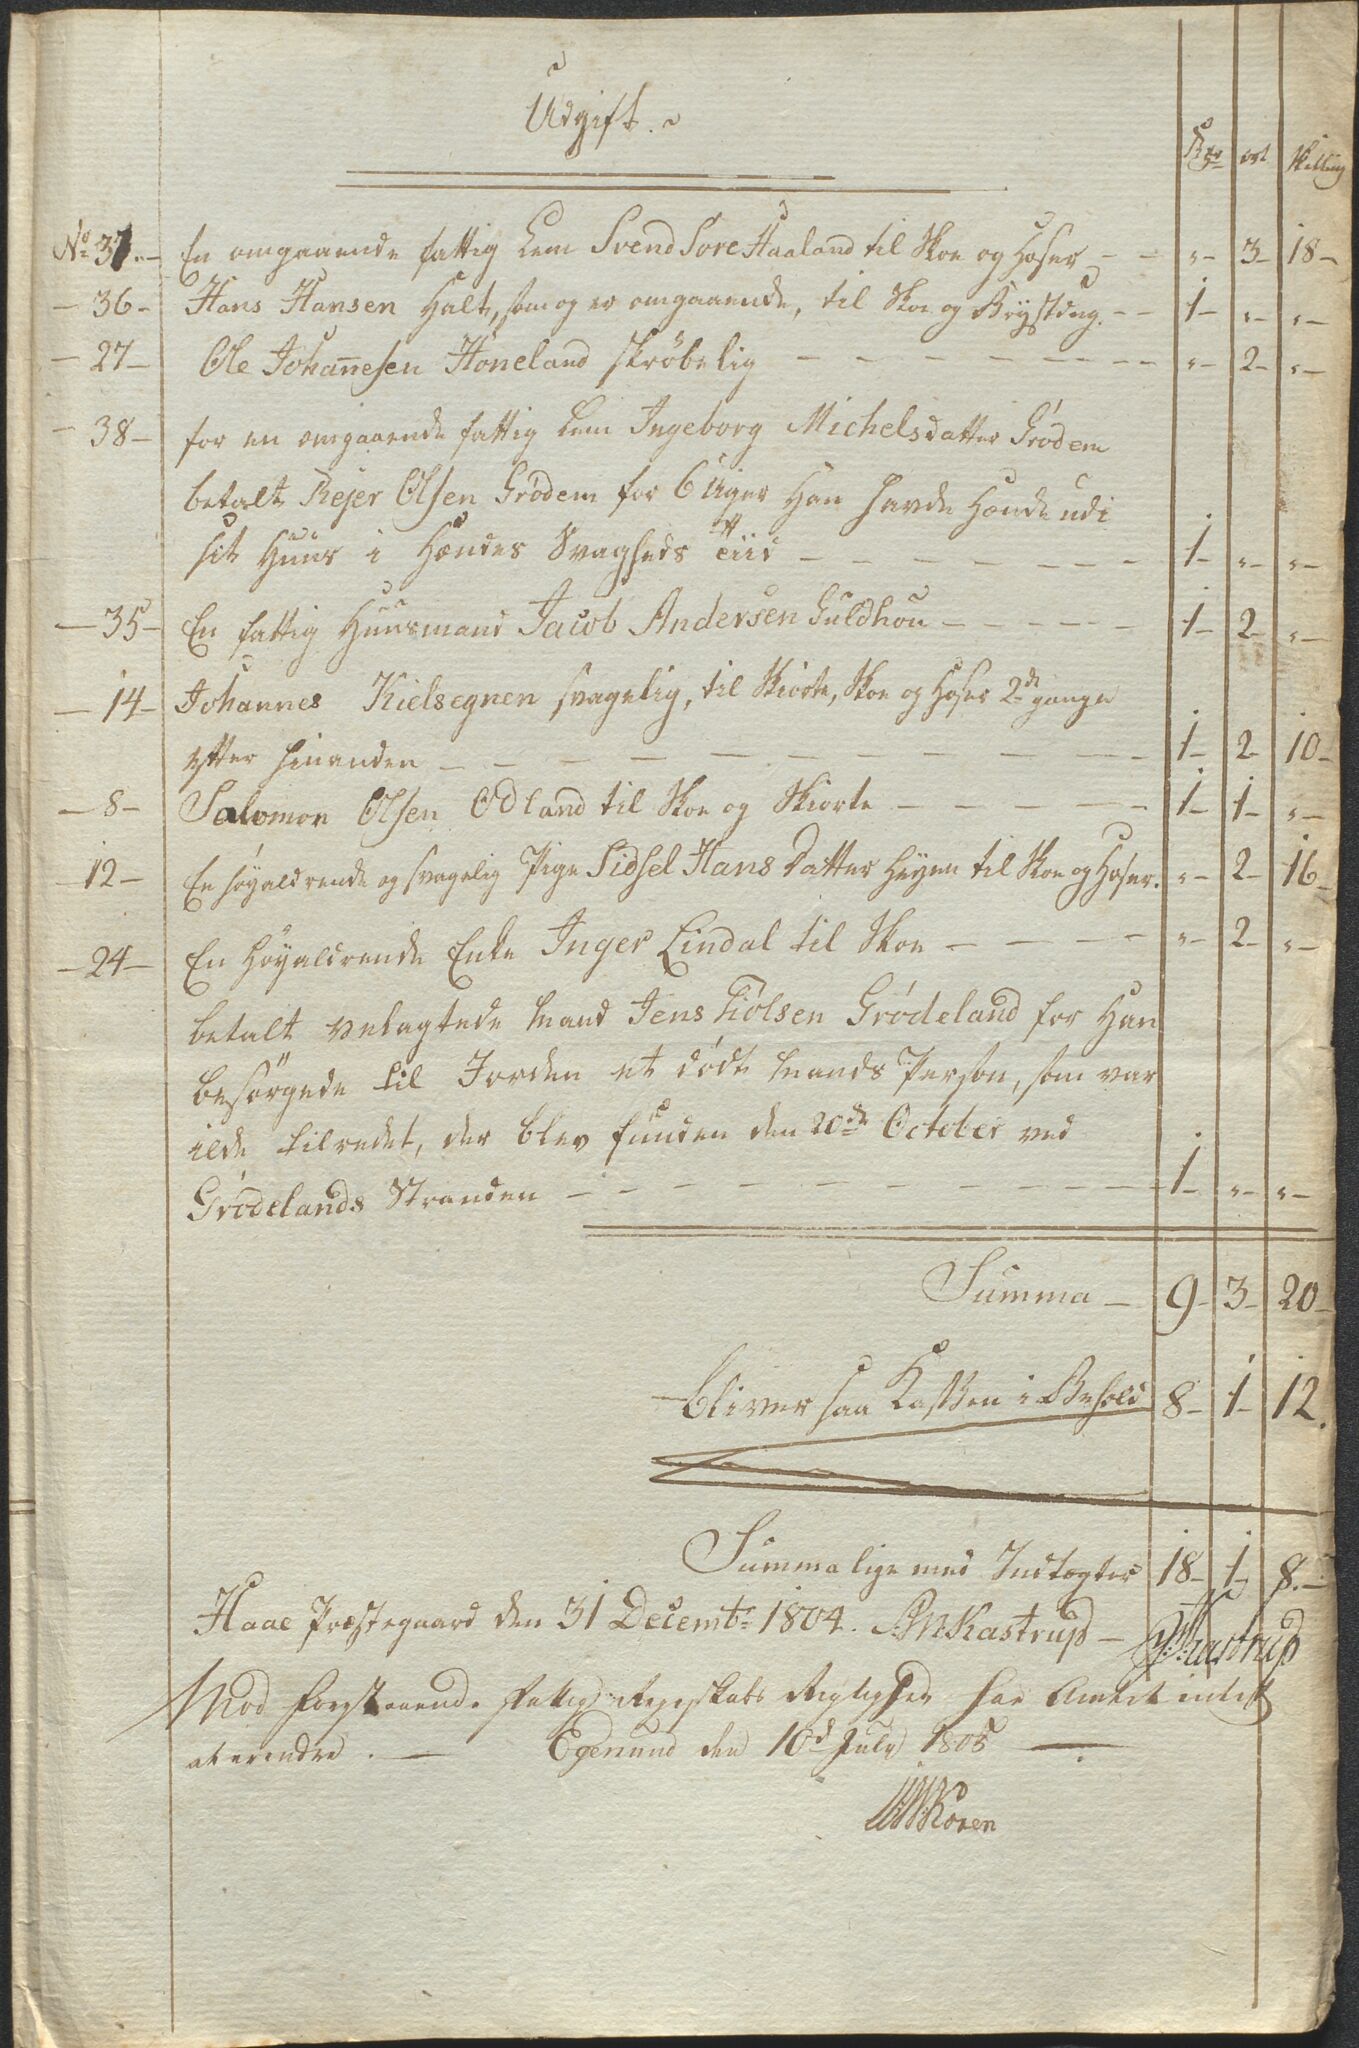 Udgift.
Rdr ort Skilling
No 37. En omgaaende fattig Lem Svend Sore Haaland til Skoe og Hoser - - „ - 3 - 18 -
- 36 - Hans Hansen Halt, som og er omgaaende, til Skoe og Brystdug. - - 1 - „ - „ -
- 27 - Ole Johannesen Höneland skrøbelig - - - - - - - - „ - 2 - „ -
- 38 - for en omgaaende fattig Lem Ingeborg Michelsdatter Grødem
betalt Rejer Olsen Grødem for 6 Uger Han havde Hænde udi
sit Huus i Hændes Svagheds Tiid - - - - - - - 1 - „ - „ -
- 35 - En fattig Huusmand Jacob Andersen Guldhou - - - - - 1 - 2 - „ -
- 14 - Johannes Kielsegnen svagelig, til Skiorte, Skoe og Hoser 2de gange
efter hinanden - - - - - - - - - - 1 - 2 - 10 -
- 8 - Salomon Olsen Odland til Skoe og Skiorte - - - - - 1 - 1 - „ -
- 12 - En høyaldrende og svagelig Pige Sidsel Hans Datter Høyen til Skoe og Hoser. „ - 2 - 16 -
- 24 - En Høyaldrende Enke Inger Lindal til Skoe - - - - „ - 2 - „ -
betalt velagtede Mand Jens Tiølsen Grødeland for Han
besørgede til Jorden et dødt Mands Person, som var
ilde tilredet, der blev funden den 20de October ved
Grødelands Stranden - - - - - - - - - - 1 - „ - „ -
Summa - 9 - 3 - 20 -
bliver saa Kassen i Behold 8 - 1 - 12.
Summa lige med Indtægter 18 - 1 - 8. -
Haae Præstegaard den 31 Decembr 1804. Kastrup - Kastrup
Mod forestaaende Fattig Regnskabs Rigtighed har Amtet intet
at erindre. - Egersund den 10d July 1805 -
Koren